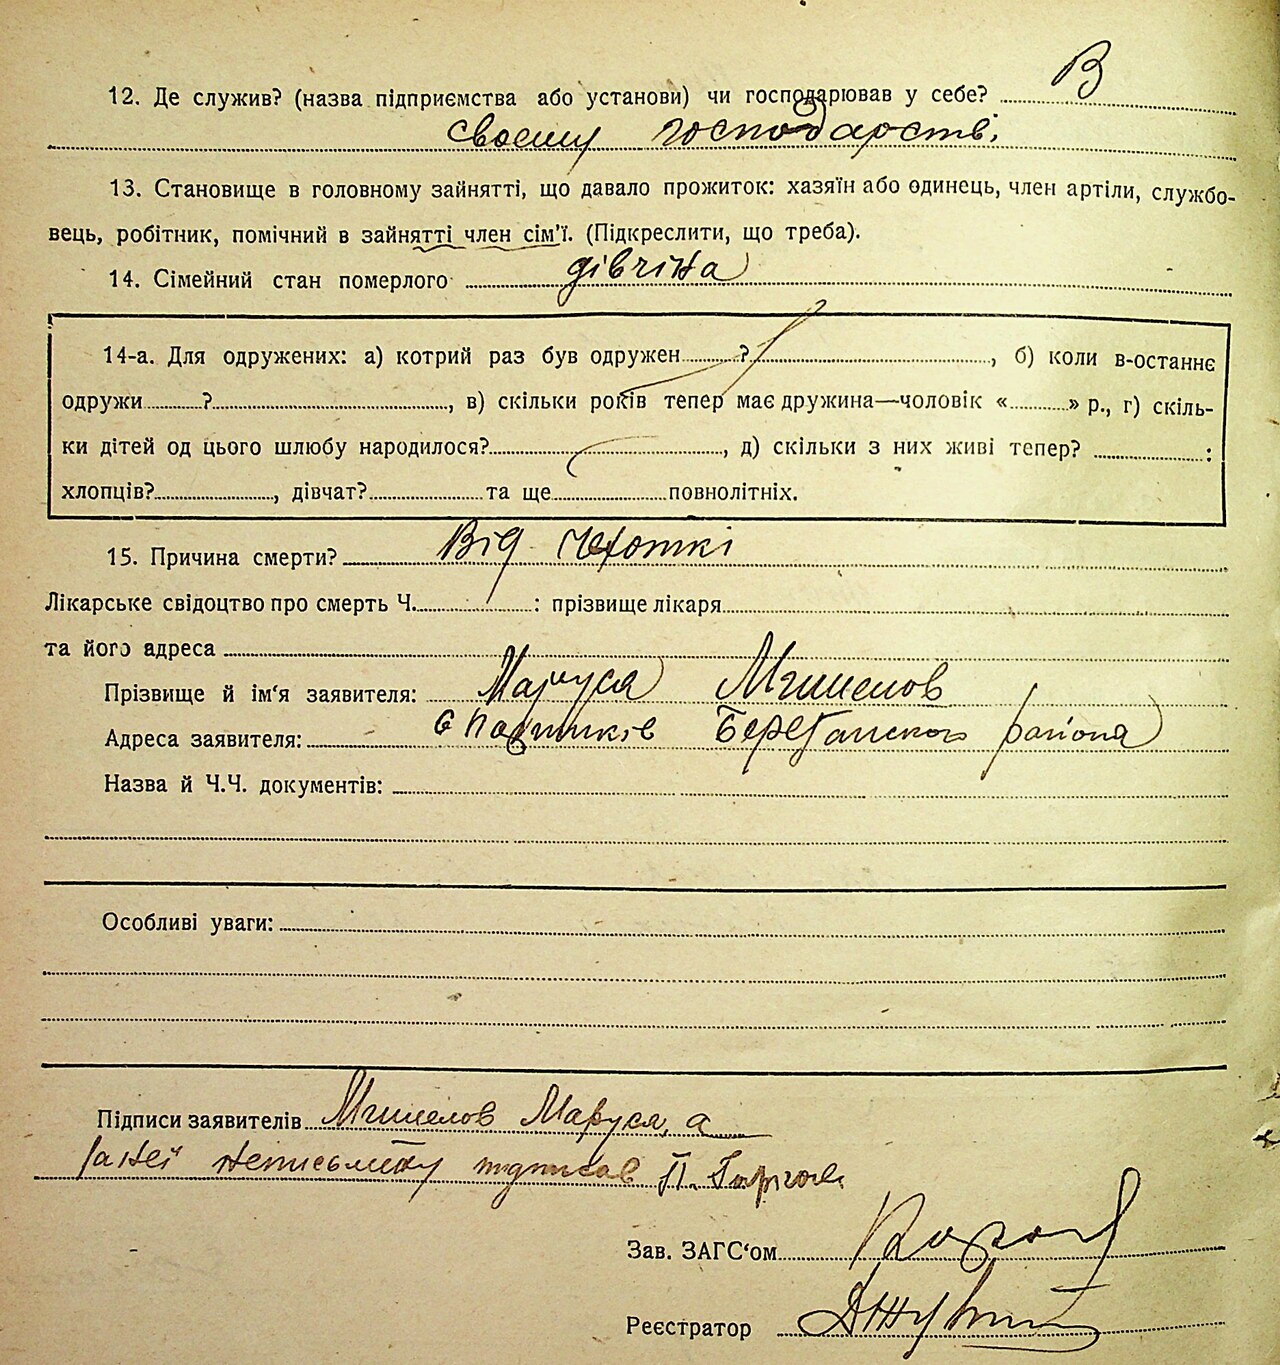 12. Де служив? (назва підприємства або установи) чи господарював у себе? В
своєму господарстві
13. Становище в головному зайнятті, що давало прожиток: хазяїн або одинець, член артіли, службо-
вець, робітник, помічний в зайнятті член сім'ї. (Підкреслити, що треба).
14. Сімейний стан померлого дівчіна
14-а. Для одружених: а) котрий раз був одружен ? , б) коли в-останнє
одружи ? , в) скільки років тепер має дружина—чоловік « » р., г) скіль-
ки дітей од цього шлюбу народилося? , д) скільки з них живі тепер? :
хлопців? , дівчат? та ще повнолітніх.
15. Причина смерти? Від чехоткі
Лікарське свідоцтво про смерть Ч. : прізвище лікаря
та його адреса
Прізвище й ім'я заявителя: Маруся
Адреса заявителя: района
Назва й Ч.Ч. документів:
Особливі уваги:
Підписи заявителів Маруся, а
за неї неписьмену підписав П.
Зав. ЗАГС'ом
Реєстратор